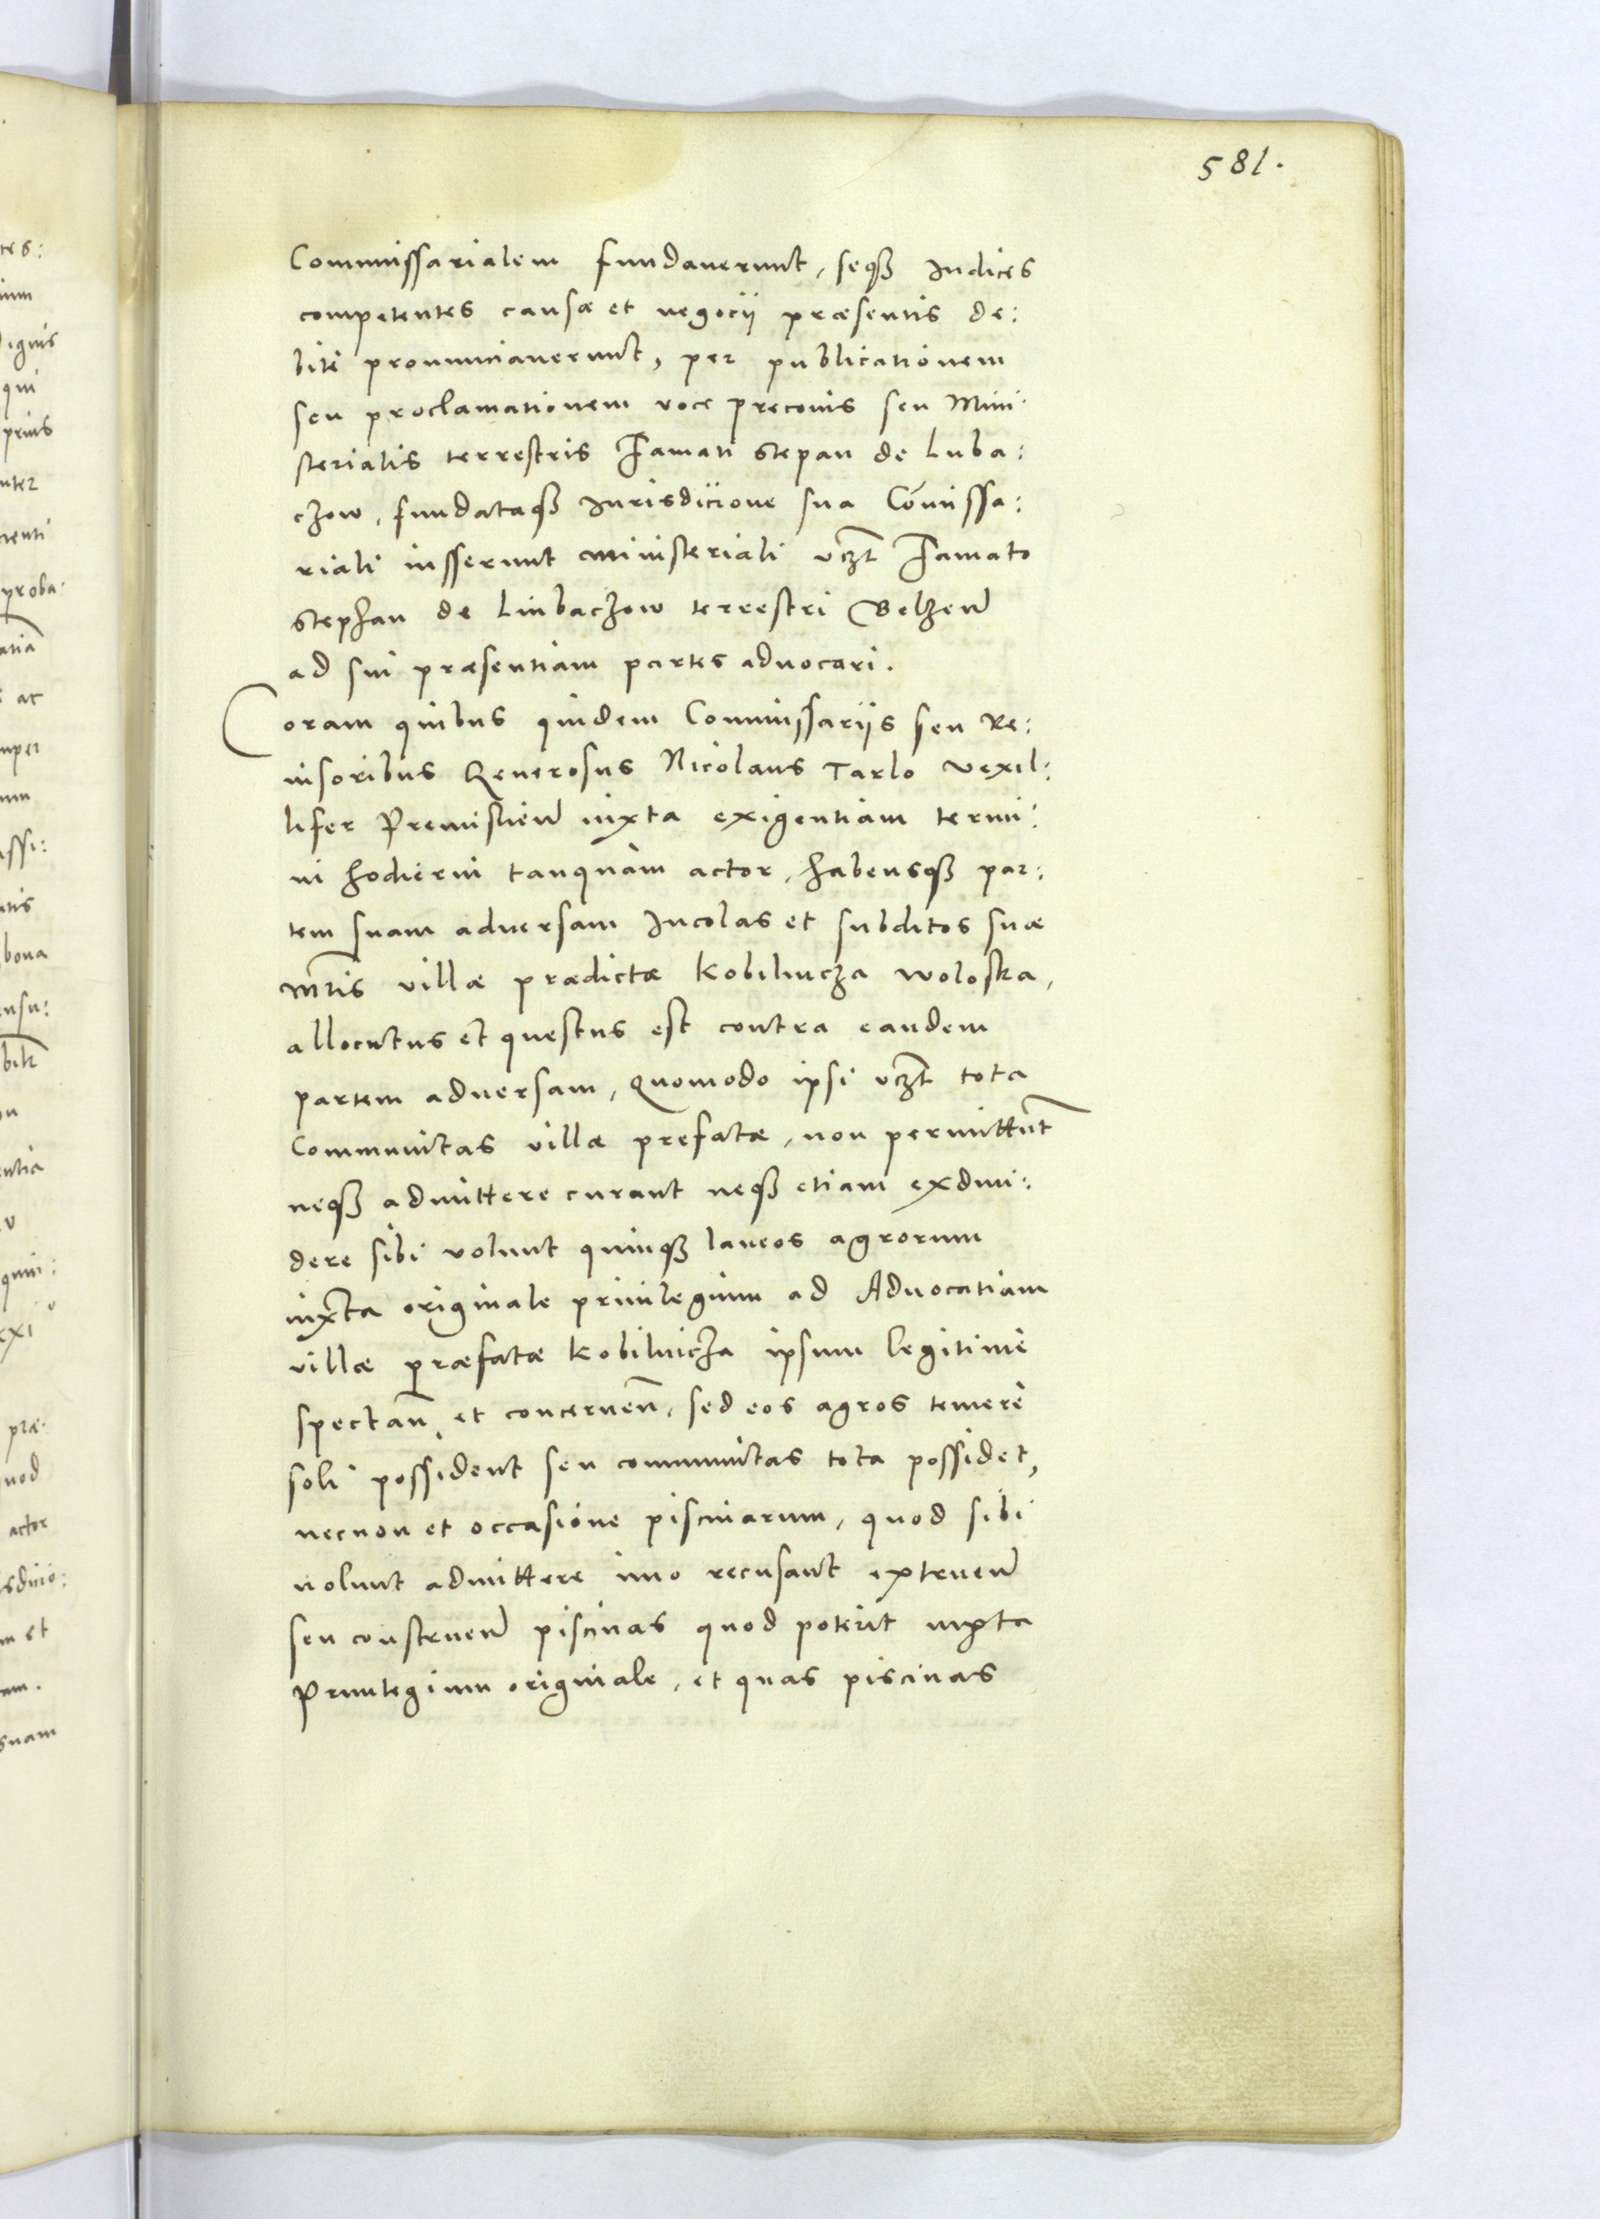 581.
Commissarialem fundaverunt, seqꝫ Iudices
competentes causæ et negocii præsentis de:
bite pronunciaverunt, per publicationem
seu proclamationem voce preconis seu Mini:
sterialis terrestris Famati Stepan de Luba:
czow, fundataqꝫ Iurisdicione sua Com̃issa:
riali iusserunt ministeriali vcꝫt Famato
Stephan de Liubaczow terrestri Belzen̄
ad sui præsentiam partes advocari.
Coram quibus quidem Commissariis seu Re:
visoribus Generosus Nicolaus Tarlo Vexil:
lifer Premislien̄ iuxta exigentiam termi:
ni hodierni tanquam actor, habensqꝫ par:
tem suam adversam Incolas et subditos suæ
Mt̃is villæ prædictæ Kobilnicza Woloska,
allocutus et questus est contra eandem
partem adversam, Quomodo ipsi vcꝫt tota
Communitas villæ prefatæ, non permittunt
neqꝫ admittere curant neqꝫ etiam exdivi:
dere sibi volunt quinqꝫ laneos agrorum
iuxta originale privilegium ad Advocatiam
villæ præfatæ Kobilnicza ipsum legitime
spectan̄ et concernen̄, sed eos agros temere
soli possident seu communitas tota possidet,
necnon et occasione piscinarum, quod sibi
nolunt admittere imo recusant extruen̄
seu construen̄ piscinas quod poterit iuxta
Privilegium originale, et quas piscinas